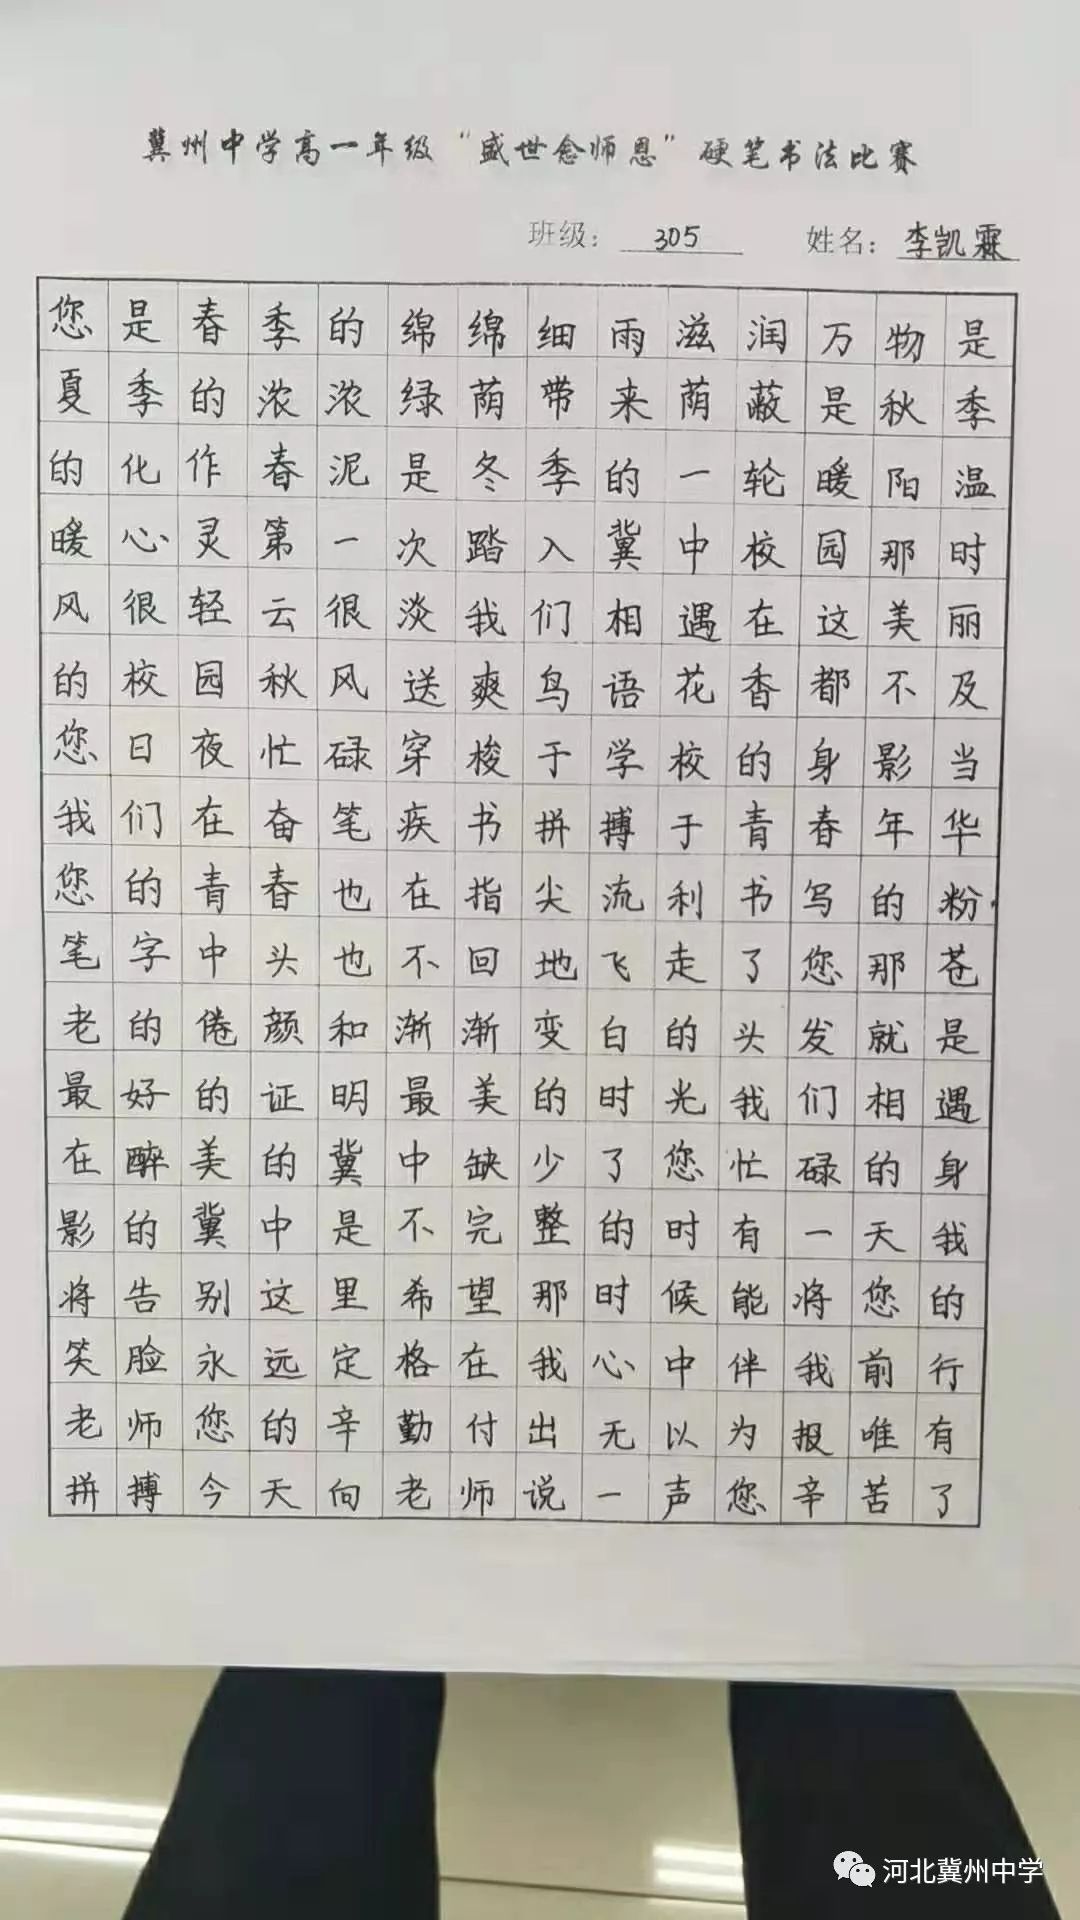 冀州中学高一年级“盛世念师恩”硬笔书法比赛
班级：305 姓名：李凯霖
您是春季的绵绵细雨滋润万物是
夏季的浓浓绿荫带来荫蔽是秋季
的化作春泥是冬季的一轮暖阳温
暖心灵第一次踏入冀中校园那时
风很轻云很淡我们相遇在这美丽
的校园秋风送爽鸟语花香都不及
您日夜忙碌穿梭于学校的身影当
我们在奋笔疾书拼搏于青春年华
您的青春也在指尖流利书写的粉
笔字中头也不回地飞走了您那苍
老的倦颜和渐渐变白的头发就是
最好的证明最美的时光我们相遇
在醉美的冀中缺少了您忙碌的身
影的冀中是不完整的时有一天我
将告别这里希望那时候能将您的
笑脸永远定格在我心中伴我前行
老师您的辛勤付出无以为报唯有
拼搏今天向老师说一声您辛苦了
河北冀州中学